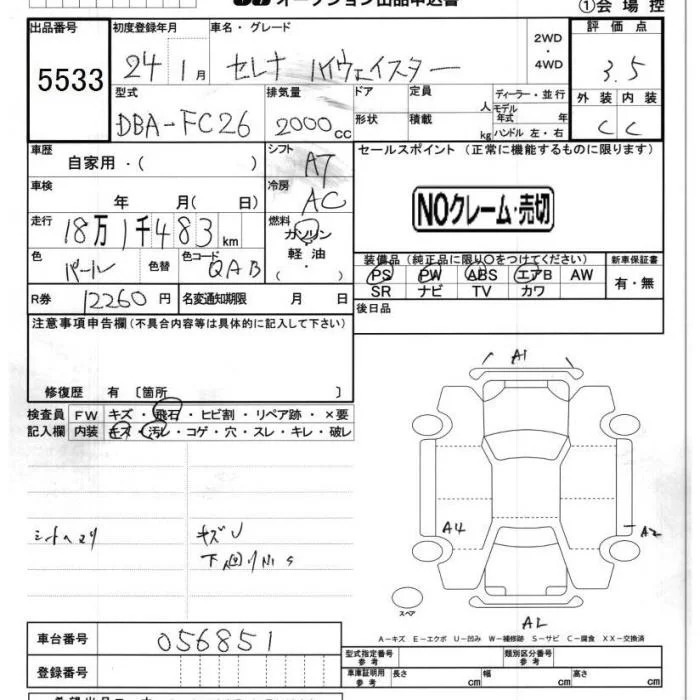 オークション出品申込書
①会場控
出品番号
5533
初度登録年月
24 1月
車名・グレード
セレナ ハイウェイスター
2WD
・
4WD
評価点
3.5
型式
DBA-FC26
排気量
2000cc
ドア
定員
人
ディーラー・並行
モデル年式 年
形状
積載
kg
ハンドル 左・右
外装
内装
C
C
車歴
自家用・( )
シフト
AT
車検
年 月( 日)
冷房
AC
走行
18万1千483km
燃料
ガソリン
軽油
・
( )
色
パール
色替
色コード
QAB
R券
12260円
名変通知期限 月 日
セールスポイント (正常に機能するものに限ります)
NOクレーム・売切
装備品(純正品に限り○をつけてください)
新車保証書
PS PW ABS エアB AW
SR ナビ TV カワ
有・無
後日品
注意事項申告欄(不具合内容等は具体的に記入して下さい)
修復歴 有 〔箇所 〕
検査員記入欄
FW キズ・飛石・ヒビ割・リペア跡・×要
内装 キズ・汚レ・コゲ・穴・スレ・キレ・破レ
シートヘタリ
キズU
下廻りハS
A1
A4
A2
スペア
AL
A-キズ E-エクボ U-凹み W-補修跡 S-サビ C-腐食 XX-交換済
車台番号
056851
登録番号
型式指定番号
参考
類別区分番号
参考
車庫証明用
参考
長さ cm
幅 cm
高さ cm